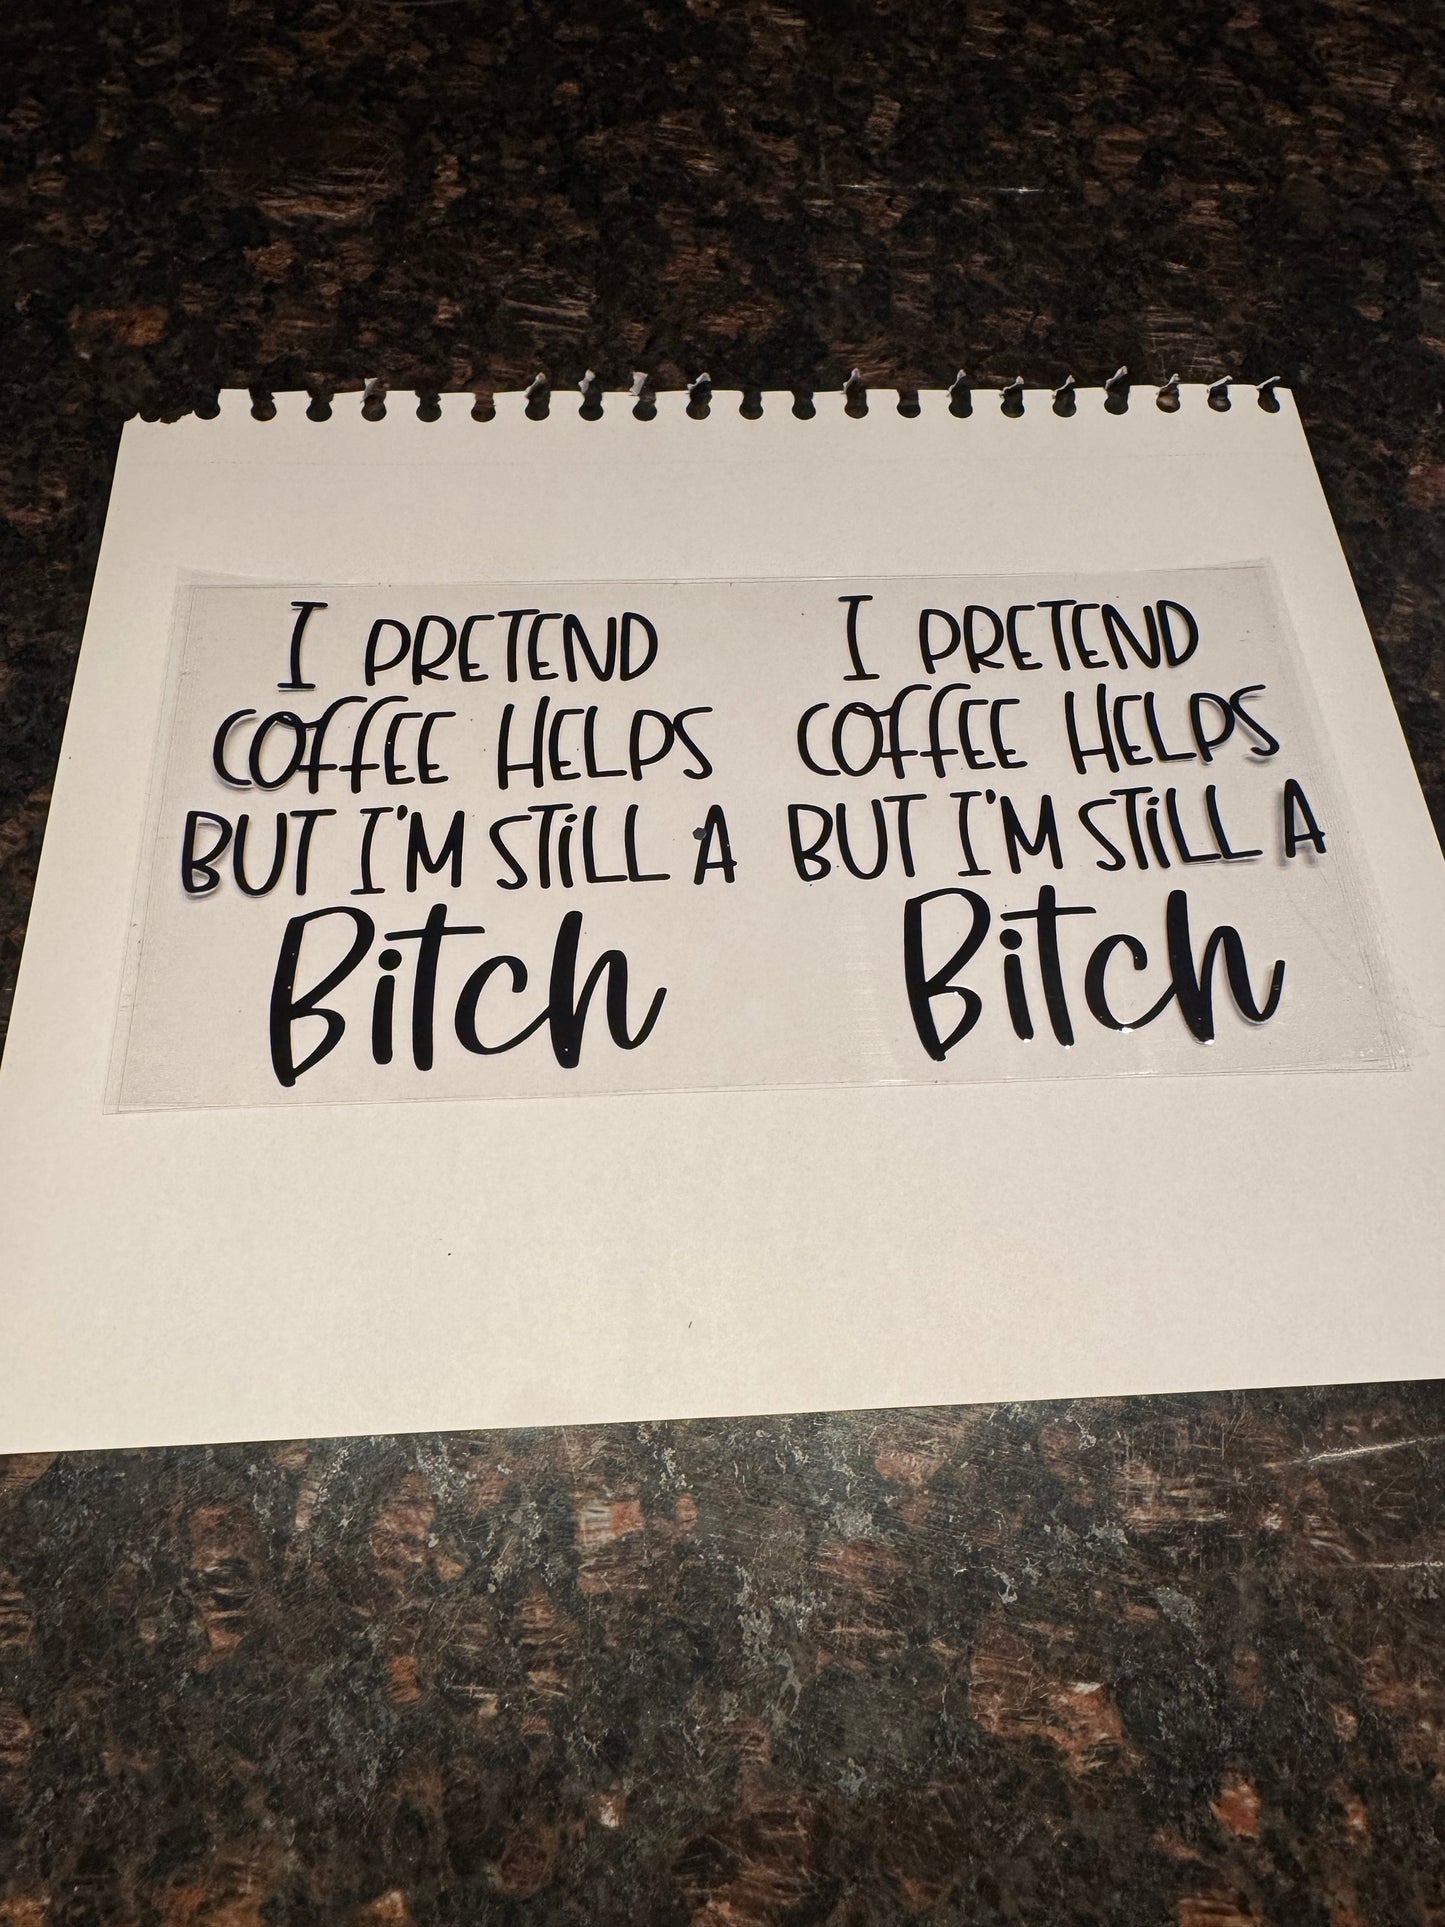 I PRETEND
COFFEE HELPS
BUT I'M STiLL A
Bitch
I PRETEND
COFFEE HELPS
BUT I'M STiLL A
Bitch